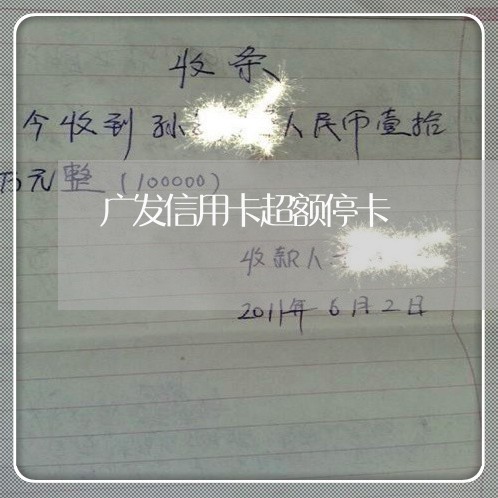 收条
今收到孙 人民币壹拾
万元整(100000)
广发信用卡超额停卡
收款人
2011年6月2日